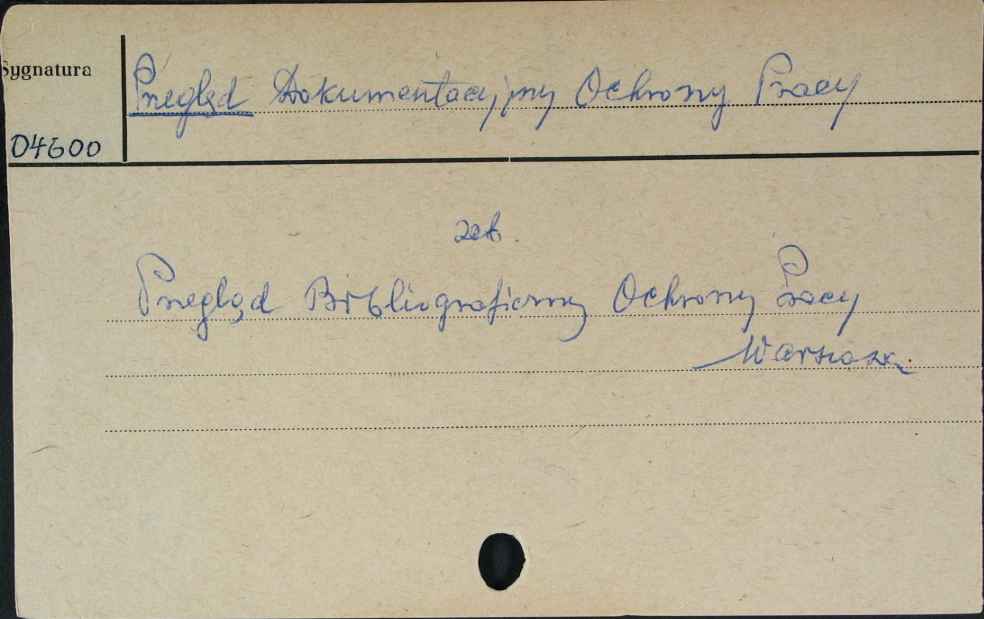 Sygnatura
Przegląd Dokumentacyjny Ochrony Pracy
04600
zob.
Przegląd Bibliograficzny Ochrony Pracy
Warszawa.